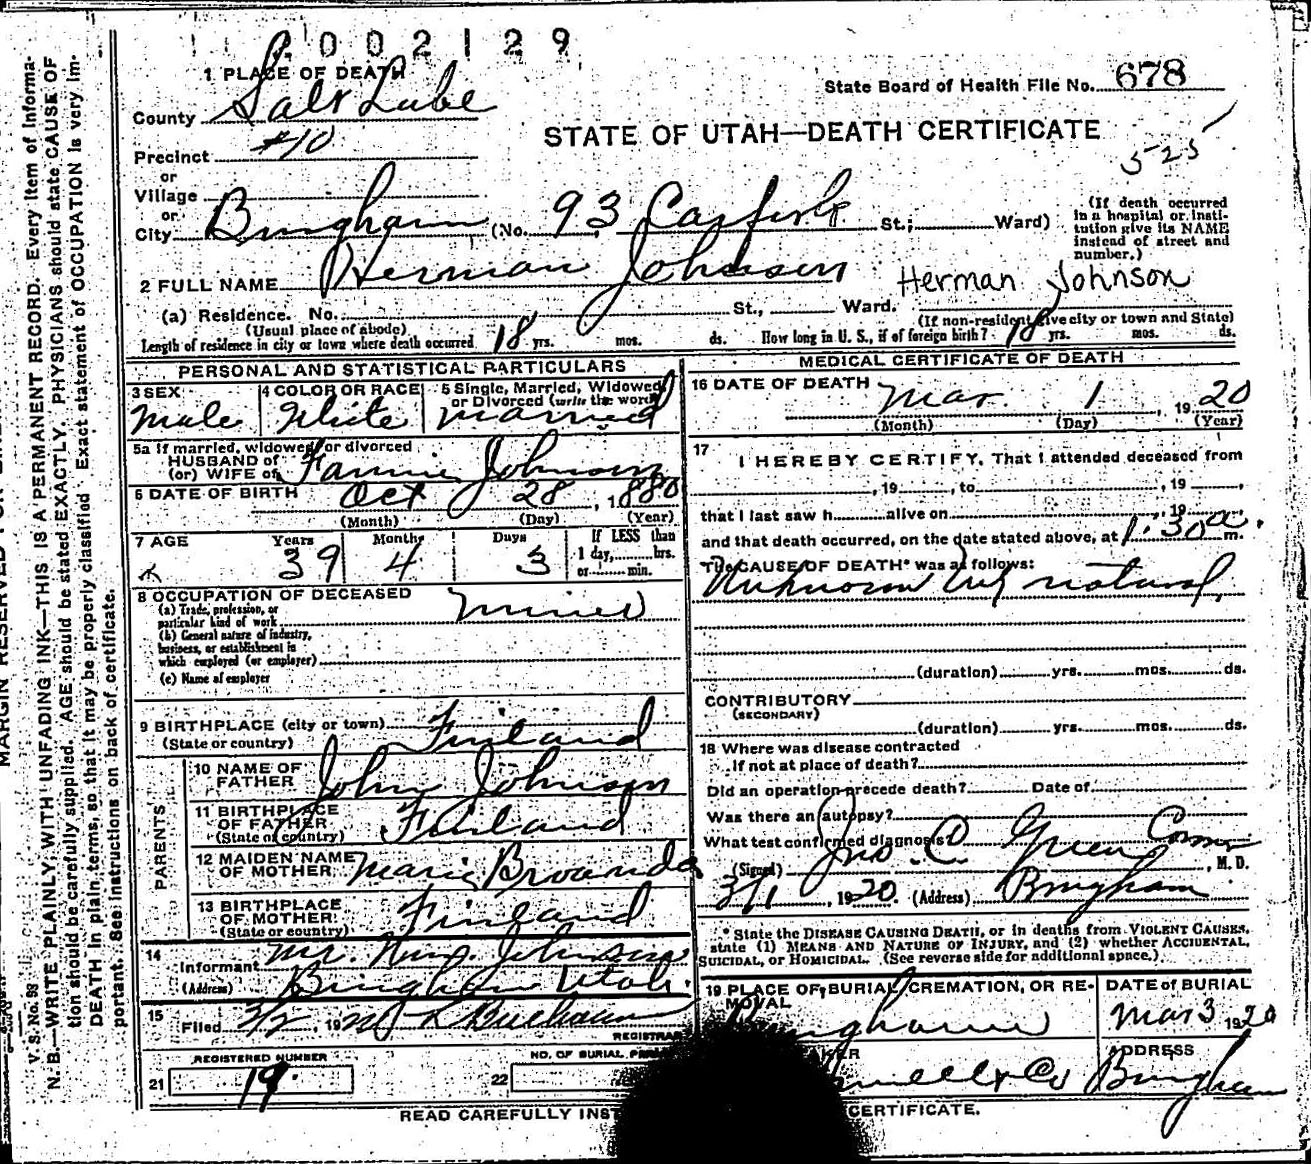 002129
1 PLACE OF DEATH
State Board of Health File No. 678
County Salt Lake
STATE OF UTAH—DEATH CERTIFICATE
525
Precinct #10
or
Village
or
City Bingham (No. 93 Carrfork St.; Ward)
(If death occurred in a hospital or insti-
tution give its NAME
instead of street and
number.)
2 FULL NAME Herman Johnson
Herman Johnson
(a) Residence. No. St., Ward.
(Usual place of abode) (If non-resident give city or town and State)
Length of residence in city or town where death occurred 18 yrs. mos. ds. How long in U. S., if of foreign birth? 18 yrs. mos. ds.
PERSONAL AND STATISTICAL PARTICULARS
3 SEX Male
4 COLOR OR RACE White
5 Single, Married, Widowed
or Divorced (write the word) Married
5a If married, widowed or divorced
HUSBAND of
(or) WIFE of Fannie Johnson
6 DATE OF BIRTH Oct 28, 1880
(Month) (Day) (Year)
7 AGE Years 39 Months 4 Days 3
If LESS than
1 day, hrs.
or min.
8 OCCUPATION OF DECEASED
(a) Trade, profession, or
particular kind of work Miner
(b) General nature of industry,
business, or establishment in
which employed (or employer)
(c) Name of employer
9 BIRTHPLACE (city or town)
(State or country) Finland
PARENTS
10 NAME OF
FATHER John Johnson
11 BIRTHPLACE
OF FATHER
(State or country) Finland
12 MAIDEN NAME
OF MOTHER Marie
13 BIRTHPLACE
OF MOTHER
(State or country) Finland
14
Informant Mr. Johnson
(Address) Bingham Utah.
15
Filed 3/2, 1920 Buchanan
REGISTRAR
REGISTERED NUMBER
21 19.
NO. OF BURIAL
22
MEDICAL CERTIFICATE OF DEATH
16 DATE OF DEATH Mar. 1, 1920
(Month) (Day) (Year)
17
I HEREBY CERTIFY, That I attended deceased from
, 19 , to , 19 ,
that I last saw h alive on , 19
and that death occurred, on the date stated above, at 1:30 a. m.
The CAUSE OF DEATH* was as follows:
Unknown but natural.
(duration) yrs. mos. ds.
CONTRIBUTORY
(SECONDARY)
(duration) yrs. mos. ds.
18 Where was disease contracted
If not at place of death?
Did an operation precede death? Date of
Was there an autopsy?
What test confirmed diagnosis?
(Signed) Jno. C. Green Coroner, M. D.
3/1, 1920. (Address) Bingham
* State the DISEASE CAUSING DEATH, or in deaths from VIOLENT CAUSES,
state (1) MEANS AND NATURE OF INJURY, and (2) whether ACCIDENTAL,
SUICIDAL, or HOMICIDAL. (See reverse side for additional space.)
19 PLACE OF BURIAL, CREMATION, OR RE-
MOVAL Bingham
DATE of BURIAL
Mar 3 1920
& Co
ADDRESS
Bingham
READ CAREFULLY INST CERTIFICATE.
MARGIN RESERVED FOR
V. S. No. 98
N. B.—WRITE PLAINLY, WITH UNFADING INK—THIS IS A PERMANENT RECORD. Every item of informa-
tion should be carefully supplied. AGE should be stated EXACTLY. PHYSICIANS should state CAUSE OF
DEATH in plain terms, so that it may be properly classified. Exact statement of OCCUPATION is very im-
portant. See instructions on back of certificate.